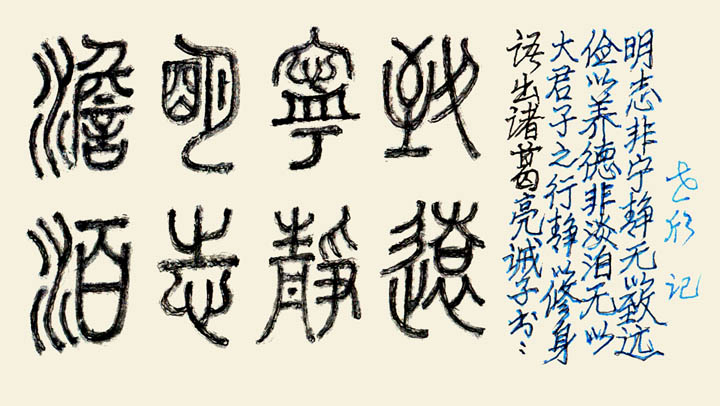 澹泊
明志
寧靜
致遠
语出诸葛亮诫子书:
夫君子之行静以修身
俭以养德非淡泊无以
明志非宁静无以致远
记